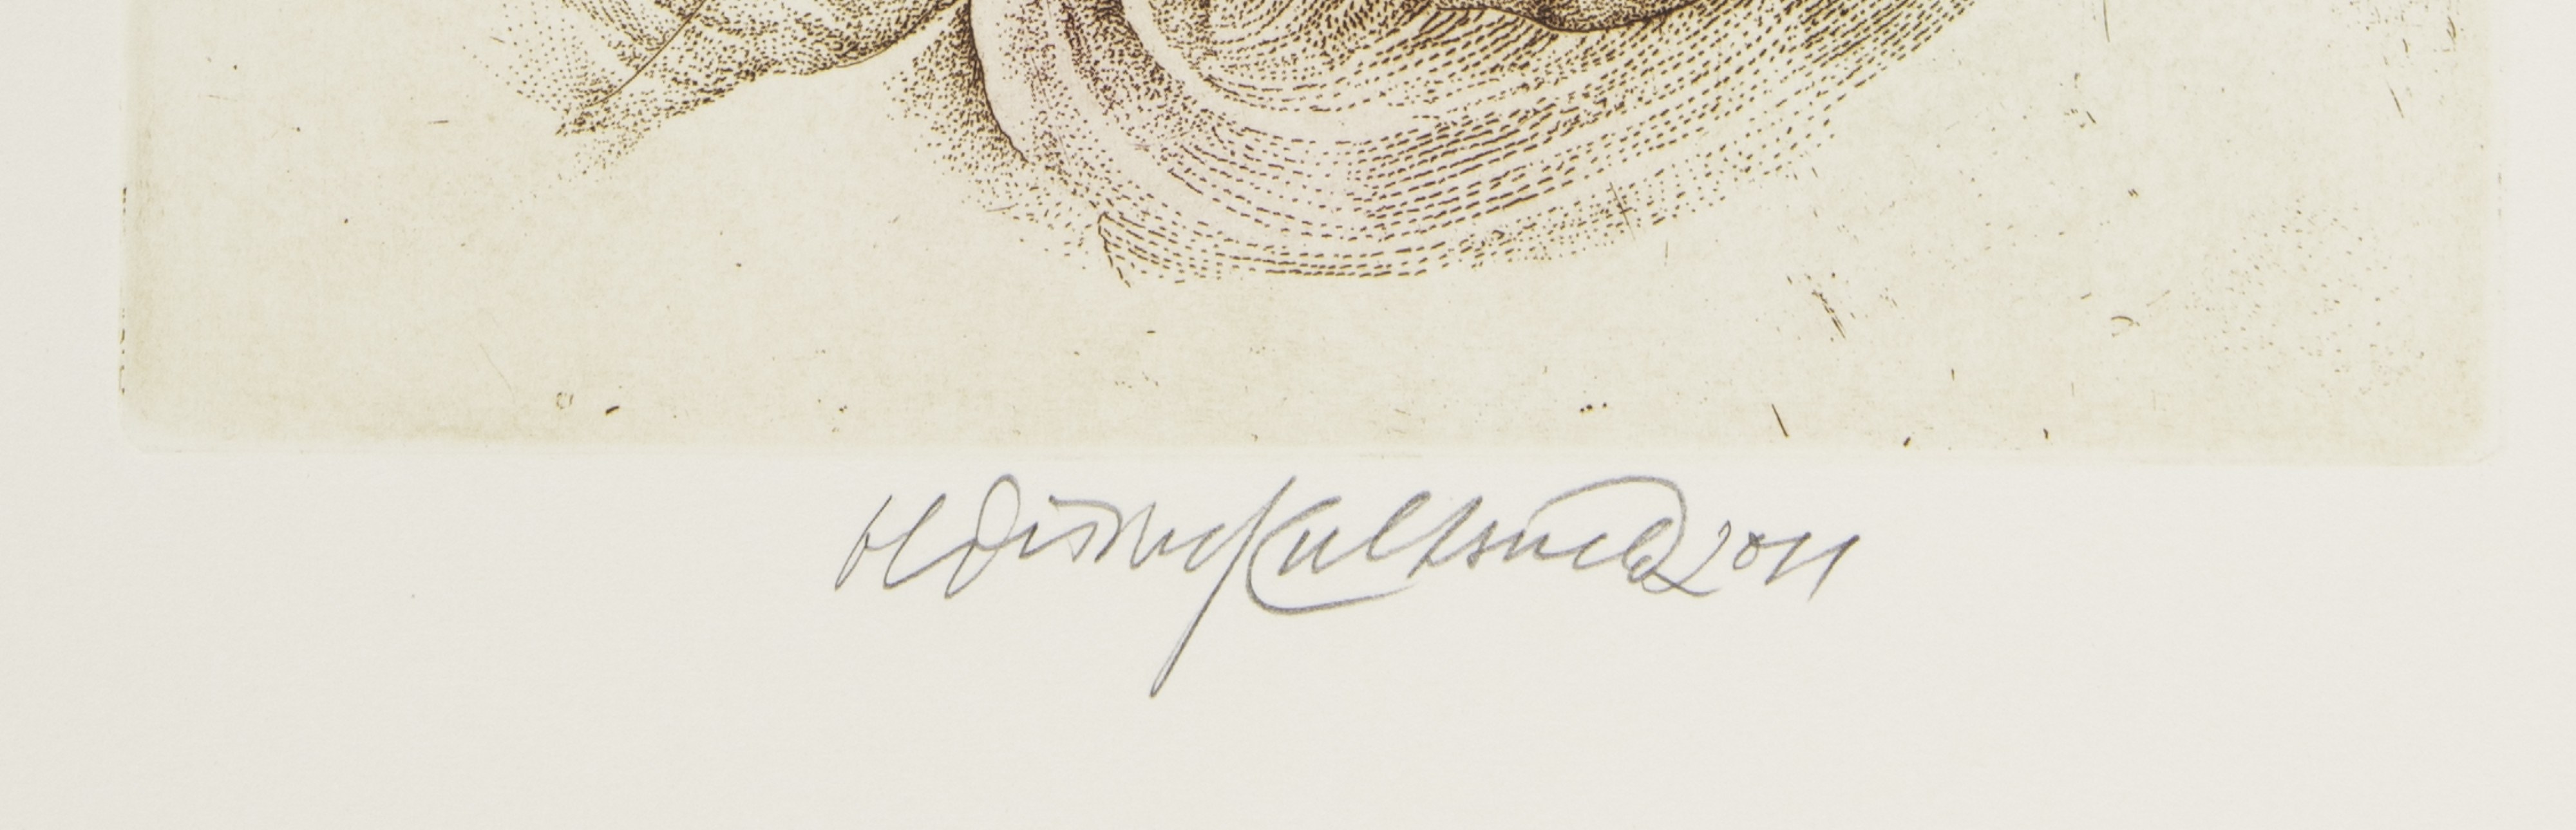 Oldřich Kulhánek 2011